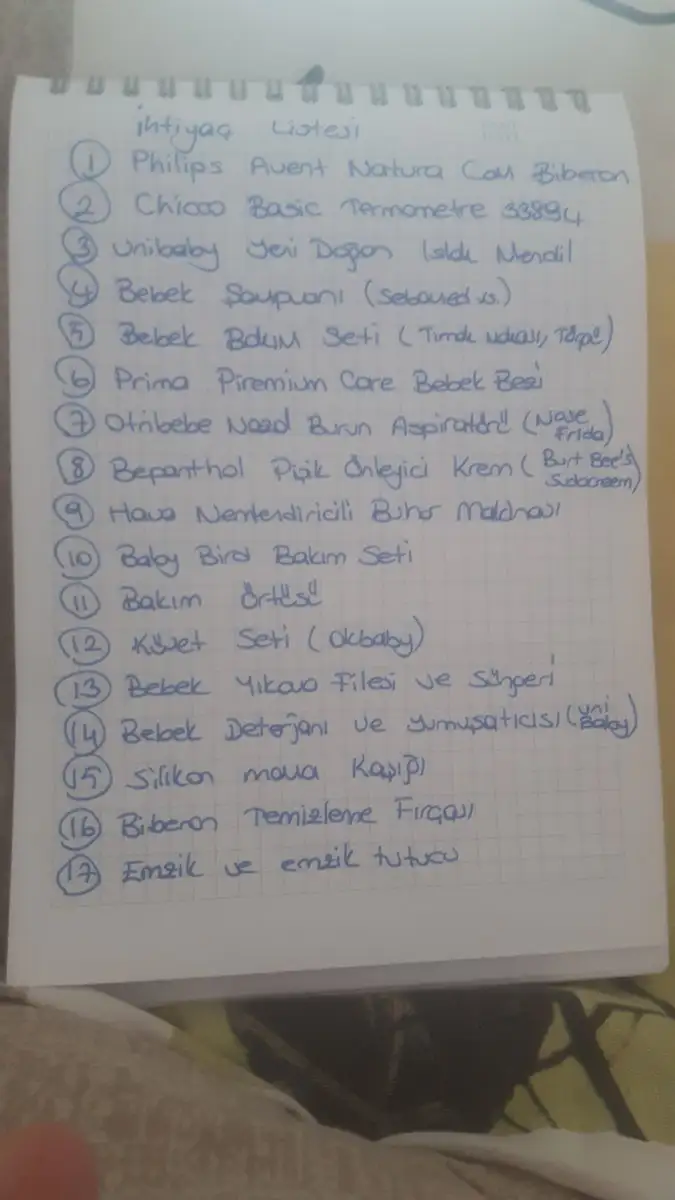 ihtiyaç Listesi
1 Philips Avent Natura Cam Biberon
2 Chicco Basic Termometre 33894
3 Unibaby Yeni Doğan Islak Mendil
4 Bebek Şampuanı (Sebamed vs.)
5 Bebek Bakım Seti (Tırnak Makası, Törpü)
6 Prima Piremium Care Bebek Bezi
7 Otribebe Nazal Burun Aspiratörü (Nose Frida)
8 Bepanthol Pişik Önleyici Krem (Burt Bee's Sudocreem)
9 Hava Nemlendiricili Buhar Makinası
10 Baby Bird Bakım Seti
11 Bakım Örtüsü
12 Küvet Seti (Okbaby)
13 Bebek Yıkava Filesi ve Süngeri
14 Bebek Deterjanı ve yumuşatıcısı (uni Baby)
15 Silikon mama Kaşığı
16 Biberon Temizleme Fırçası
17 Emzik ve emzik tutucu